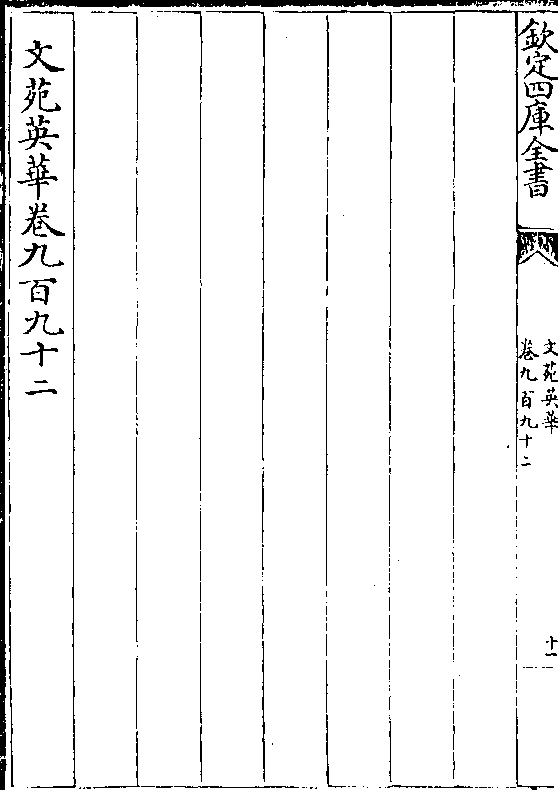 欽定四庫全書
文苑英華
卷九百九十二
十一
文苑英華卷九百九十二